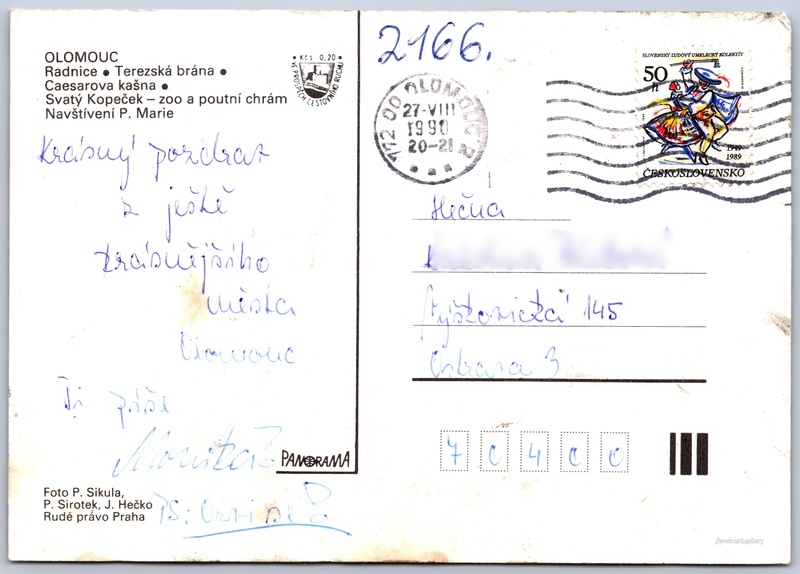 OLOMOUC
Radnice • Terezská brána •
Caesarova kašna •
Svatý Kopeček – zoo a poutní chrám
Navštívení P. Marie
Kčs 0,20
VE PROSPĚCH CESTOVNÍHO RUCHU
2166.
772 00 OLOMOUC 2
27-VIII
1990
20-21
SLOVENSKÝ ĽUDOVÝ UMELECKÝ KOLEKTÍV
50 h
1949
1989
ČESKOSLOVENSKO
Krásný pozdrav
z ještě
krásnějšího
města
Olomouc
Ti píše
Monika
PS:
Slečna
145
Ostrava 3
70400
PANORAMA
Foto P. Sikula,
P. Sirotek, J. Hečko
Rudé právo Praha
//postcard.gallery